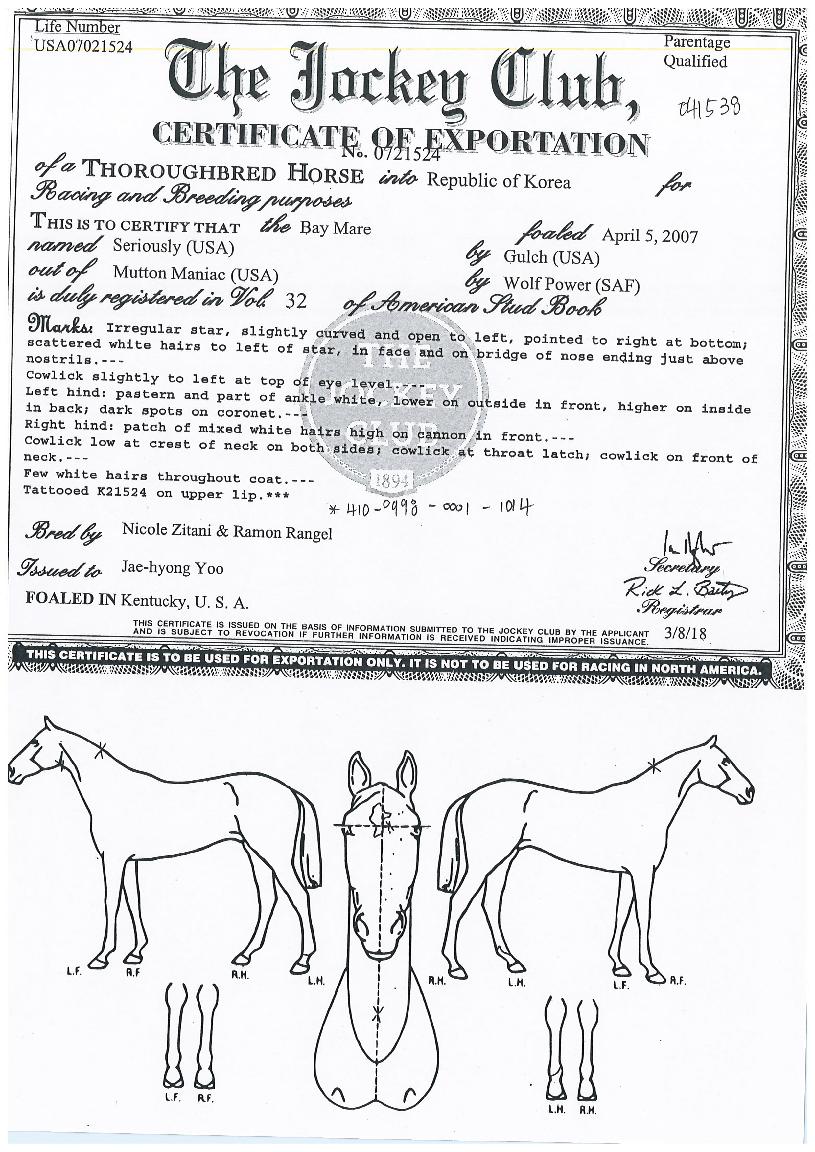 Life Number
USA07021524
Parentage
Qualified
The Jockey Club,
CERTIFICATE OF EXPORTATION
No. 0721524
of a THOROUGHBRED HORSE into Republic of Korea for
Racing and Breeding purposes
THIS IS TO CERTIFY THAT the Bay Mare foaled April 5, 2007
named Seriously (USA) by Gulch (USA)
out of Mutton Maniac (USA) by Wolf Power (SAF)
is duly registered in Vol. 32 of American Stud Book
Marks: Irregular star, slightly curved and open to left, pointed to right at bottom;
scattered white hairs to left of star, in face and on bridge of nose ending just above
nostrils.---
Cowlick slightly to left at top of eye level.---
Left hind: pastern and part of ankle white, lower on outside in front, higher on inside
in back; dark spots on coronet.---
Right hind: patch of mixed white hairs high on cannon in front.---
Cowlick low at crest of neck on both sides; cowlick at throat latch; cowlick on front of
neck.---
Few white hairs throughout coat.---
Tattooed K21524 on upper lip.***
THE
JOCKEY
CLUB
1894
* 410-0998-0001-1014
Bred by Nicole Zitani & Ramon Rangel
Issued to Jae-hyong Yoo
Secretary
Rick L. Bailey
Registrar
FOALED IN Kentucky, U. S. A.
THIS CERTIFICATE IS ISSUED ON THE BASIS OF INFORMATION SUBMITTED TO THE JOCKEY CLUB BY THE APPLICANT
AND IS SUBJECT TO REVOCATION IF FURTHER INFORMATION IS RECEIVED INDICATING IMPROPER ISSUANCE.
3/8/18
THIS CERTIFICATE IS TO BE USED FOR EXPORTATION ONLY. IT IS NOT TO BE USED FOR RACING IN NORTH AMERICA.
L.F. R.F R.H. L.H. R.H. L.H. L.F. R.F.
L.F. R.F. L.H. R.H.